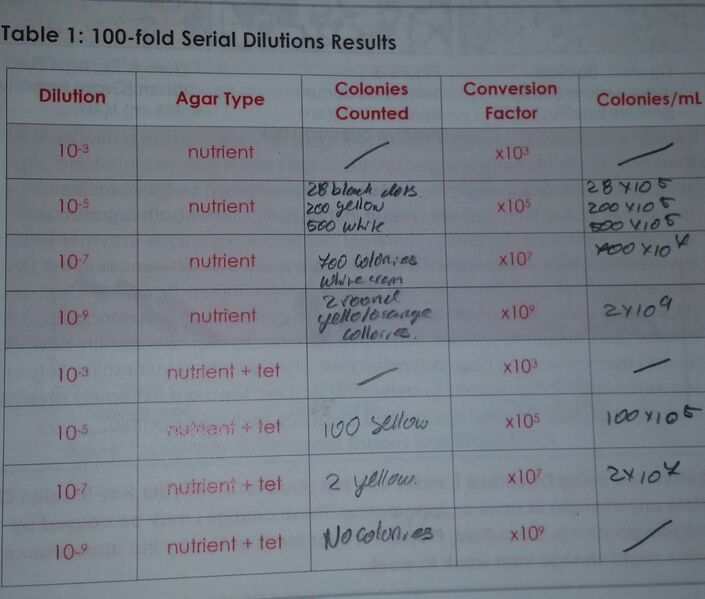 Table 1: 100-fold Serial Dilutions Results
Dilution Agar Type Colonies Counted Conversion Factor Colonies/mL
10-3 nutrient / x10³ /
10-5 nutrient 28 black dots x10⁵ 28 x 10⁵
200 yellow 200 x 10⁵
500 white 500 x 10⁵
10-7 nutrient 700 colonies x10⁷ 700 x 10⁷
white cream
10-9 nutrient 2 round x10⁹ 2x10⁹
collories.
10-3 nutrient + tet / x10³ /
10-5 nutrient + tet 100 yellow x10⁵ 100 x 10⁵
10-7 nutrient + tet 2 yellow. x10⁷ 2x10⁷
10-9 nutrient + tet No colonies x10⁹ /